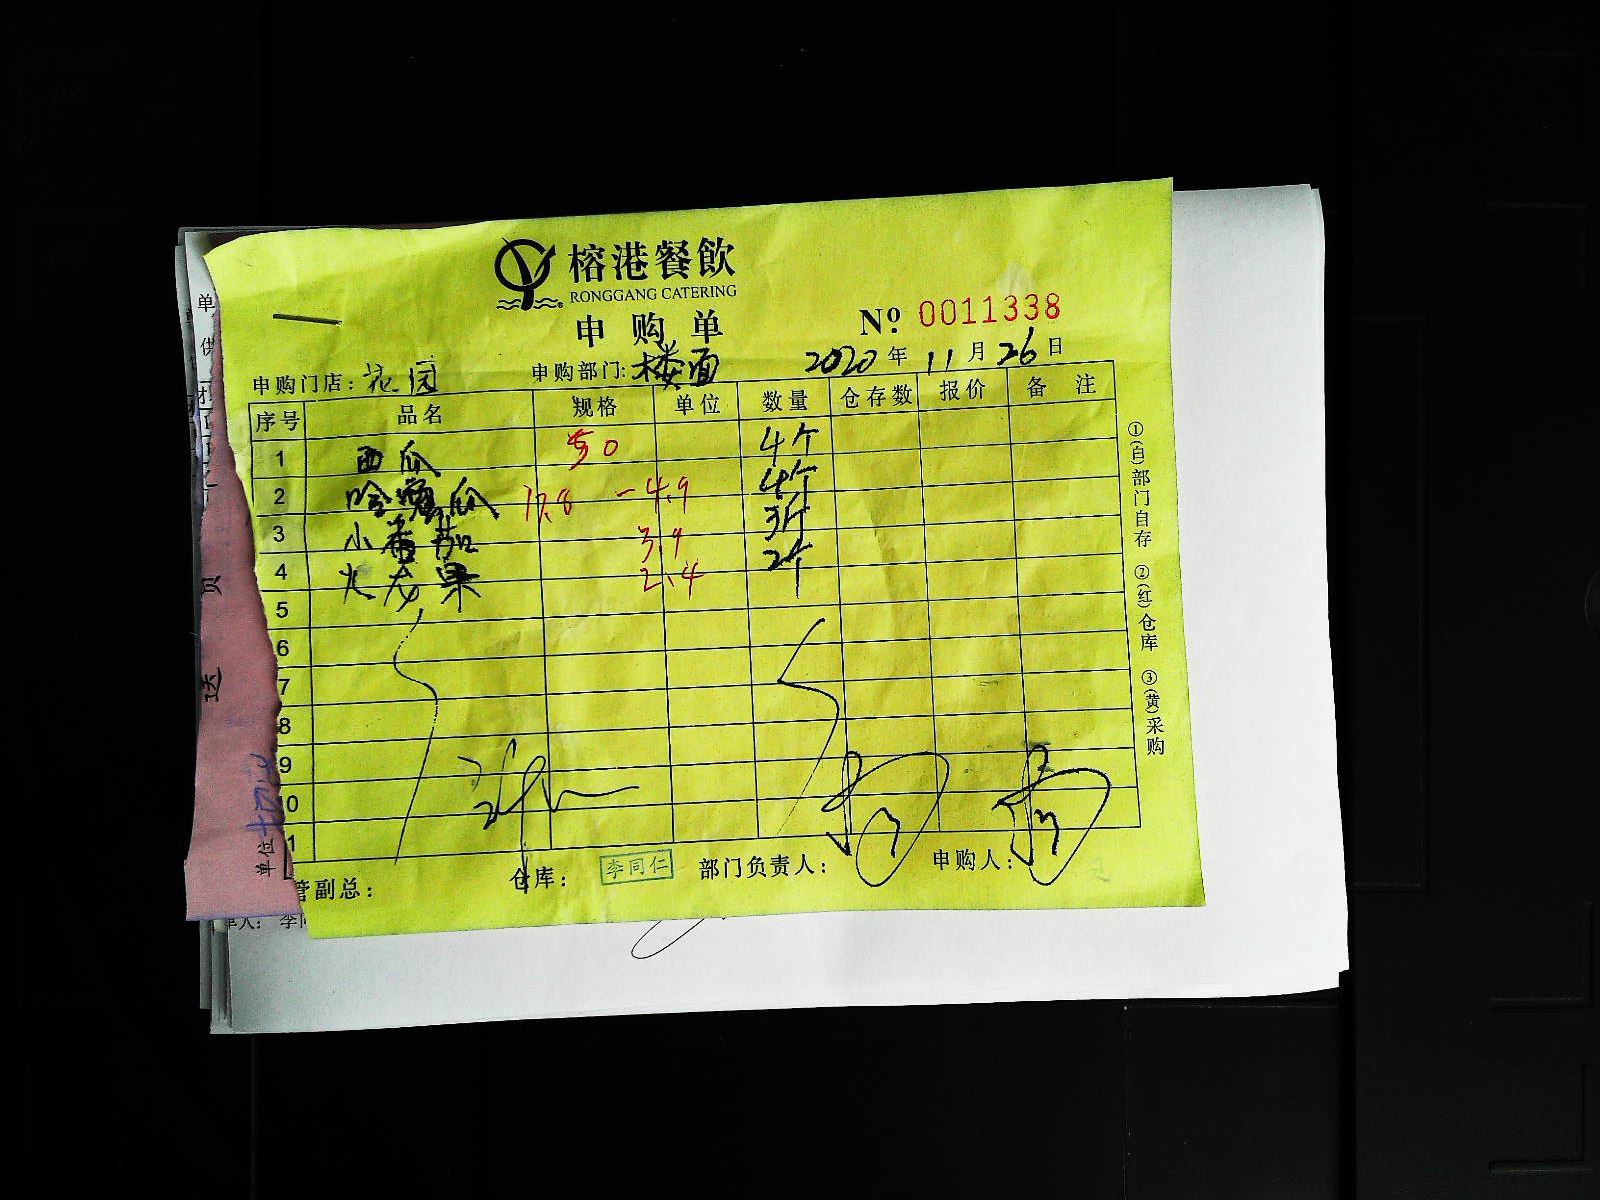 榕港餐飲
RONGGANG CATERING
申购单
№ 0011338
申购门店：花园 申购部门：楼面 2020年11月26日
序号 品名 规格 单位 数量 仓存数 报价 备注
1 西瓜 50 4个
2 哈密瓜 17.8 -4.9 4个
3 小番茄 3.9 3斤
4 火龙果 2.4 2个
5
6
7
8
9
10
1
管副总： 仓库： 李同仁 部门负责人： 申购人：
①(白)部门自存 ②(红)仓库 ③(黄)采购
单
供
送
单位
单人： 李同